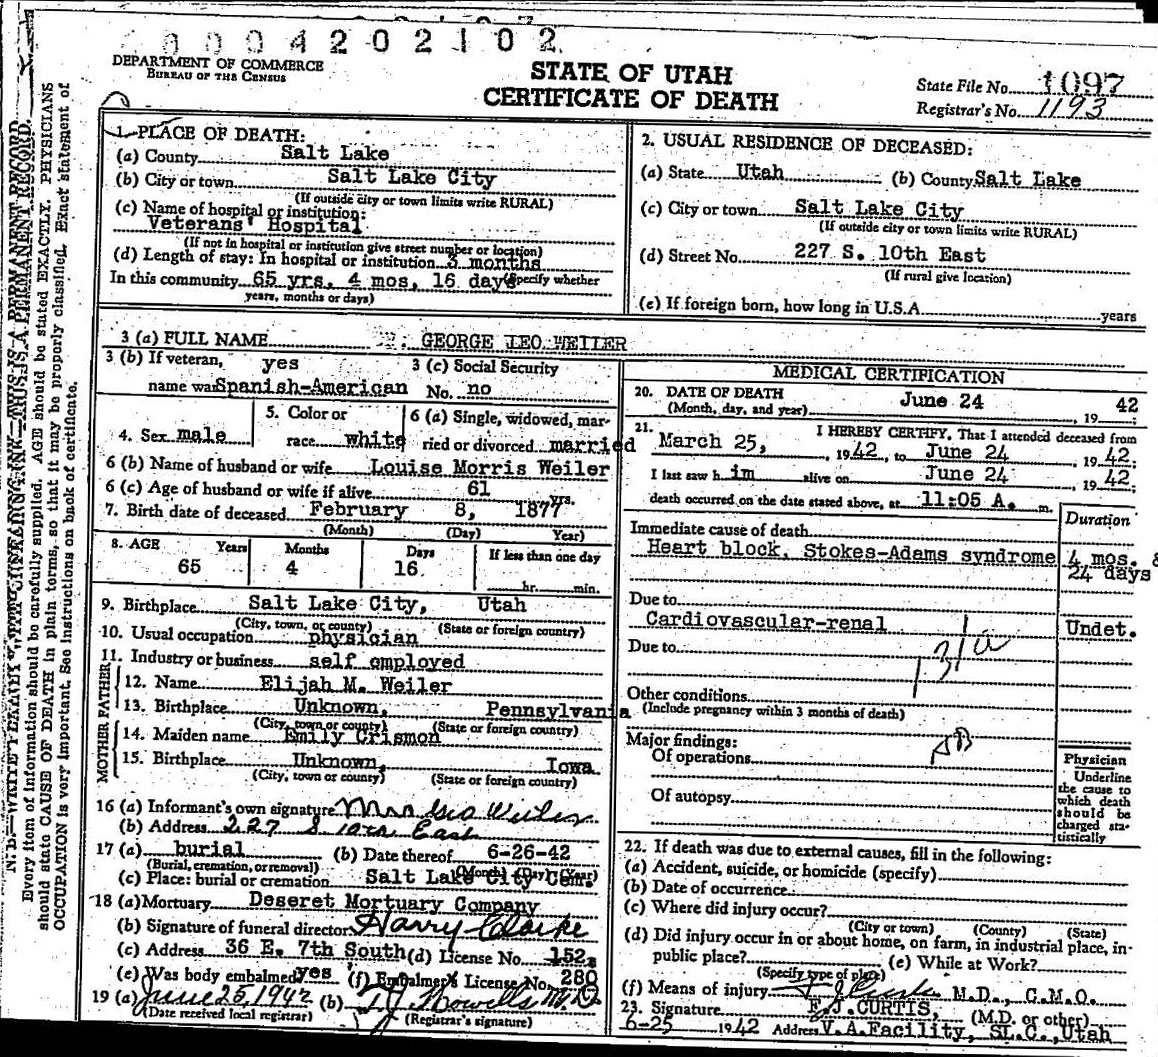 0004202102
DEPARTMENT OF COMMERCE
BUREAU OF THE CENSUS
STATE OF UTAH
CERTIFICATE OF DEATH
State File No. 1097
Registrar's No. 1193
1. PLACE OF DEATH:
(a) County Salt Lake
(b) City or town Salt Lake City
(If outside city or town limits write RURAL)
(c) Name of hospital or institution:
Veterans' Hospital
(If not in hospital or institution give street number or location)
(d) Length of stay: In hospital or institution 3 months
In this community 65 yrs. 4 mos, 16 days (Specify whether
years, months or days)
2. USUAL RESIDENCE OF DECEASED:
(a) State Utah (b) County Salt Lake
(c) City or town Salt Lake City
(If outside city or town limits write RURAL)
(d) Street No. 227 S. 10th East
(If rural give location)
(e) If foreign born, how long in U.S.A. years
3 (a) FULL NAME GEORGE LEO WEILER
3 (b) If veteran, yes 3 (c) Social Security
name war Spanish-American No. no
4. Sex male
5. Color or
race white
6 (a) Single, widowed, mar-
ried or divorced married
6 (b) Name of husband or wife Louise Morris Weiler
6 (c) Age of husband or wife if alive 61 yrs.
7. Birth date of deceased February 8, 1877
(Month) (Day) Year)
8. AGE Years Months Days If less than one day
65 4 16 hr. min.
9. Birthplace Salt Lake City, Utah
(City, town, or county) (State or foreign country)
10. Usual occupation physician
11. Industry or business self employed
FATHER
12. Name Elijah M. Weiler
13. Birthplace Unknown, Pennsylvania
(City, town or county) (State or foreign country)
MOTHER
14. Maiden name Emily Crismon
15. Birthplace Unknown, Iowa
(City, town or county) (State or foreign country)
16 (a) Informant's own signature Mrs Geo Weiler
(b) Address 227 S 10th East
17 (a) burial (b) Date thereof 6-26-42
(Burial, cremation, or removal) (Month) (Day) (Year)
(c) Place: burial or cremation Salt Lake City Cem.
18 (a) Mortuary Deseret Mortuary Company
(b) Signature of funeral director Harry Clarke
(c) Address 36 E. 7th South (d) License No. 152
(e) Was body embalmed yes (f) Embalmer's License No. 280
19 (a) June 25, 1942 (b) T J Howells M.D.
(Date received local registrar) (Registrar's signature)
MEDICAL CERTIFICATION
20. DATE OF DEATH June 24 42
(Month, day, and year) , 19
21. I HEREBY CERTIFY, That I attended deceased from
March 25, , 1942, to June 24 , 1942;
I last saw him alive on June 24 , 1942;
death occurred on the date stated above, at 11:05 A. m.
Duration
Immediate cause of death
Heart block, Stokes-Adams syndrome 4 mos. &
24 days
Due to
Cardiovascular-renal Undet.
Due to
131a
Other conditions
(Include pregnancy within 3 months of death)
Major findings:
Of operations
Of autopsy
Physician
Underline
the cause to
which death
should be
charged sta-
tistically
22. If death was due to external causes, fill in the following:
(a) Accident, suicide, or homicide (specify)
(b) Date of occurrence
(c) Where did injury occur?
(City or town) (County) (State)
(d) Did injury occur in or about home, on farm, in industrial place, in-
public place? (e) While at Work?
(Specify type of place)
(f) Means of injury M.D., C.M.O.
23. Signature E.J. CURTIS, (M.D. or other)
6-25 1942 Address V.A.Facility, SL.C., Utah
N. B.—WRITE PLAINLY WITH UNFADING INK—THIS IS A PERMANENT RECORD.
Every item of information should be carefully supplied. AGE should be stated EXACTLY. PHYSICIANS
should state CAUSE OF DEATH in plain terms, so that it may be properly classified. Exact statement of
OCCUPATION is very important. See instructions on back of certificate.